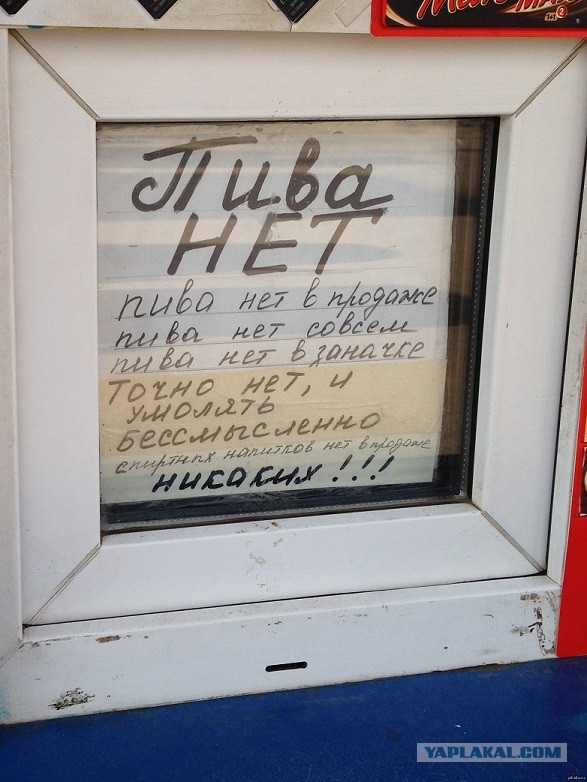 Пива
НЕТ
пива нет в продаже
пива нет совсем
пива нет в заначке
Точно нет, и
умолять
бессмысленно
спиртных напитков нет в продаже
никаких!!!
YAPLAKAL.COM